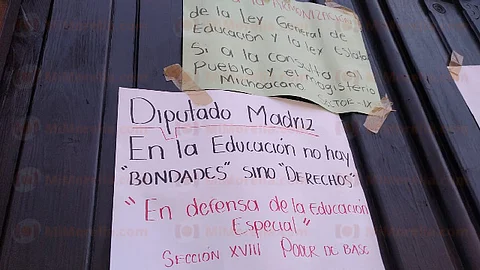 de la Ley General de
Educación y la ley Estatal
Si a la consulta al
Pueblo y el magisterio
Michoacano
Diputado Madriz
En la Educación no hay
"BONDADES" sino "DERECHOS"
"En defensa de la Educación
Especial"
SECCIÓN XVIII PODER DE BASE